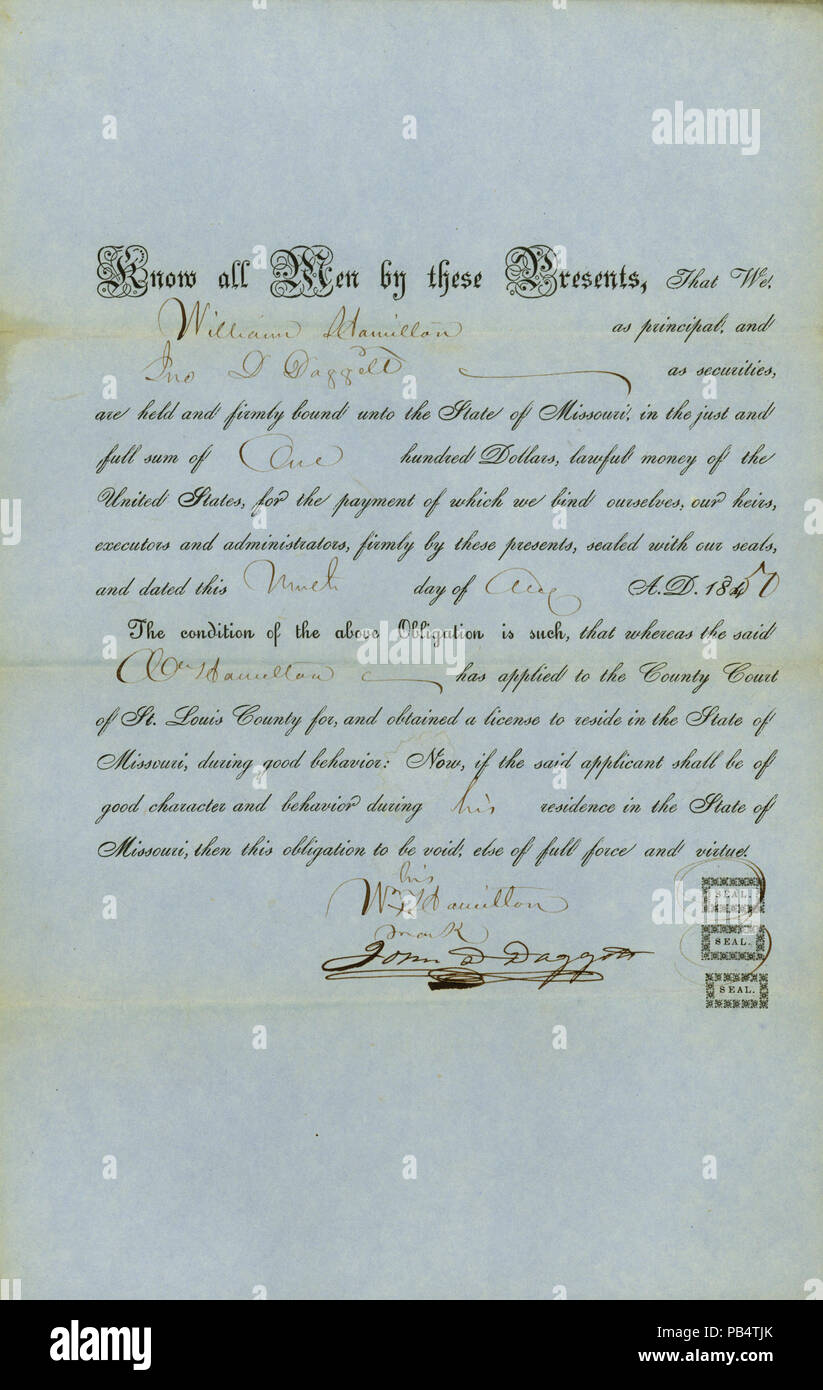 Know all Men by these Presents, That We,
William Hamilton as principal, and
Jno D Daggett as securities,
are held and firmly bound unto the State of Missouri, in the just and
full sum of One hundred Dollars, lawful money of the
United States, for the payment of which we bind ourselves, our heirs,
executors and administrators, firmly by these presents, sealed with our seals,
and dated this day of Aug A.D. 1850
The condition of the above Obligation is such, that whereas the said
Wm Hamilton has applied to the County Court
of St. Louis County for, and obtained a license to reside in the State of
Missouri, during good behavior: Now, if the said applicant shall be of
good character and behavior during his residence in the State of
Missouri, then this obligation to be void, else of full force and virtue.
his
Wm X Hamilton SEAL.
mark
John D Daggett SEAL.
SEAL.
alamy
a alamy
Image ID: PB4TJK
www.alamy.com